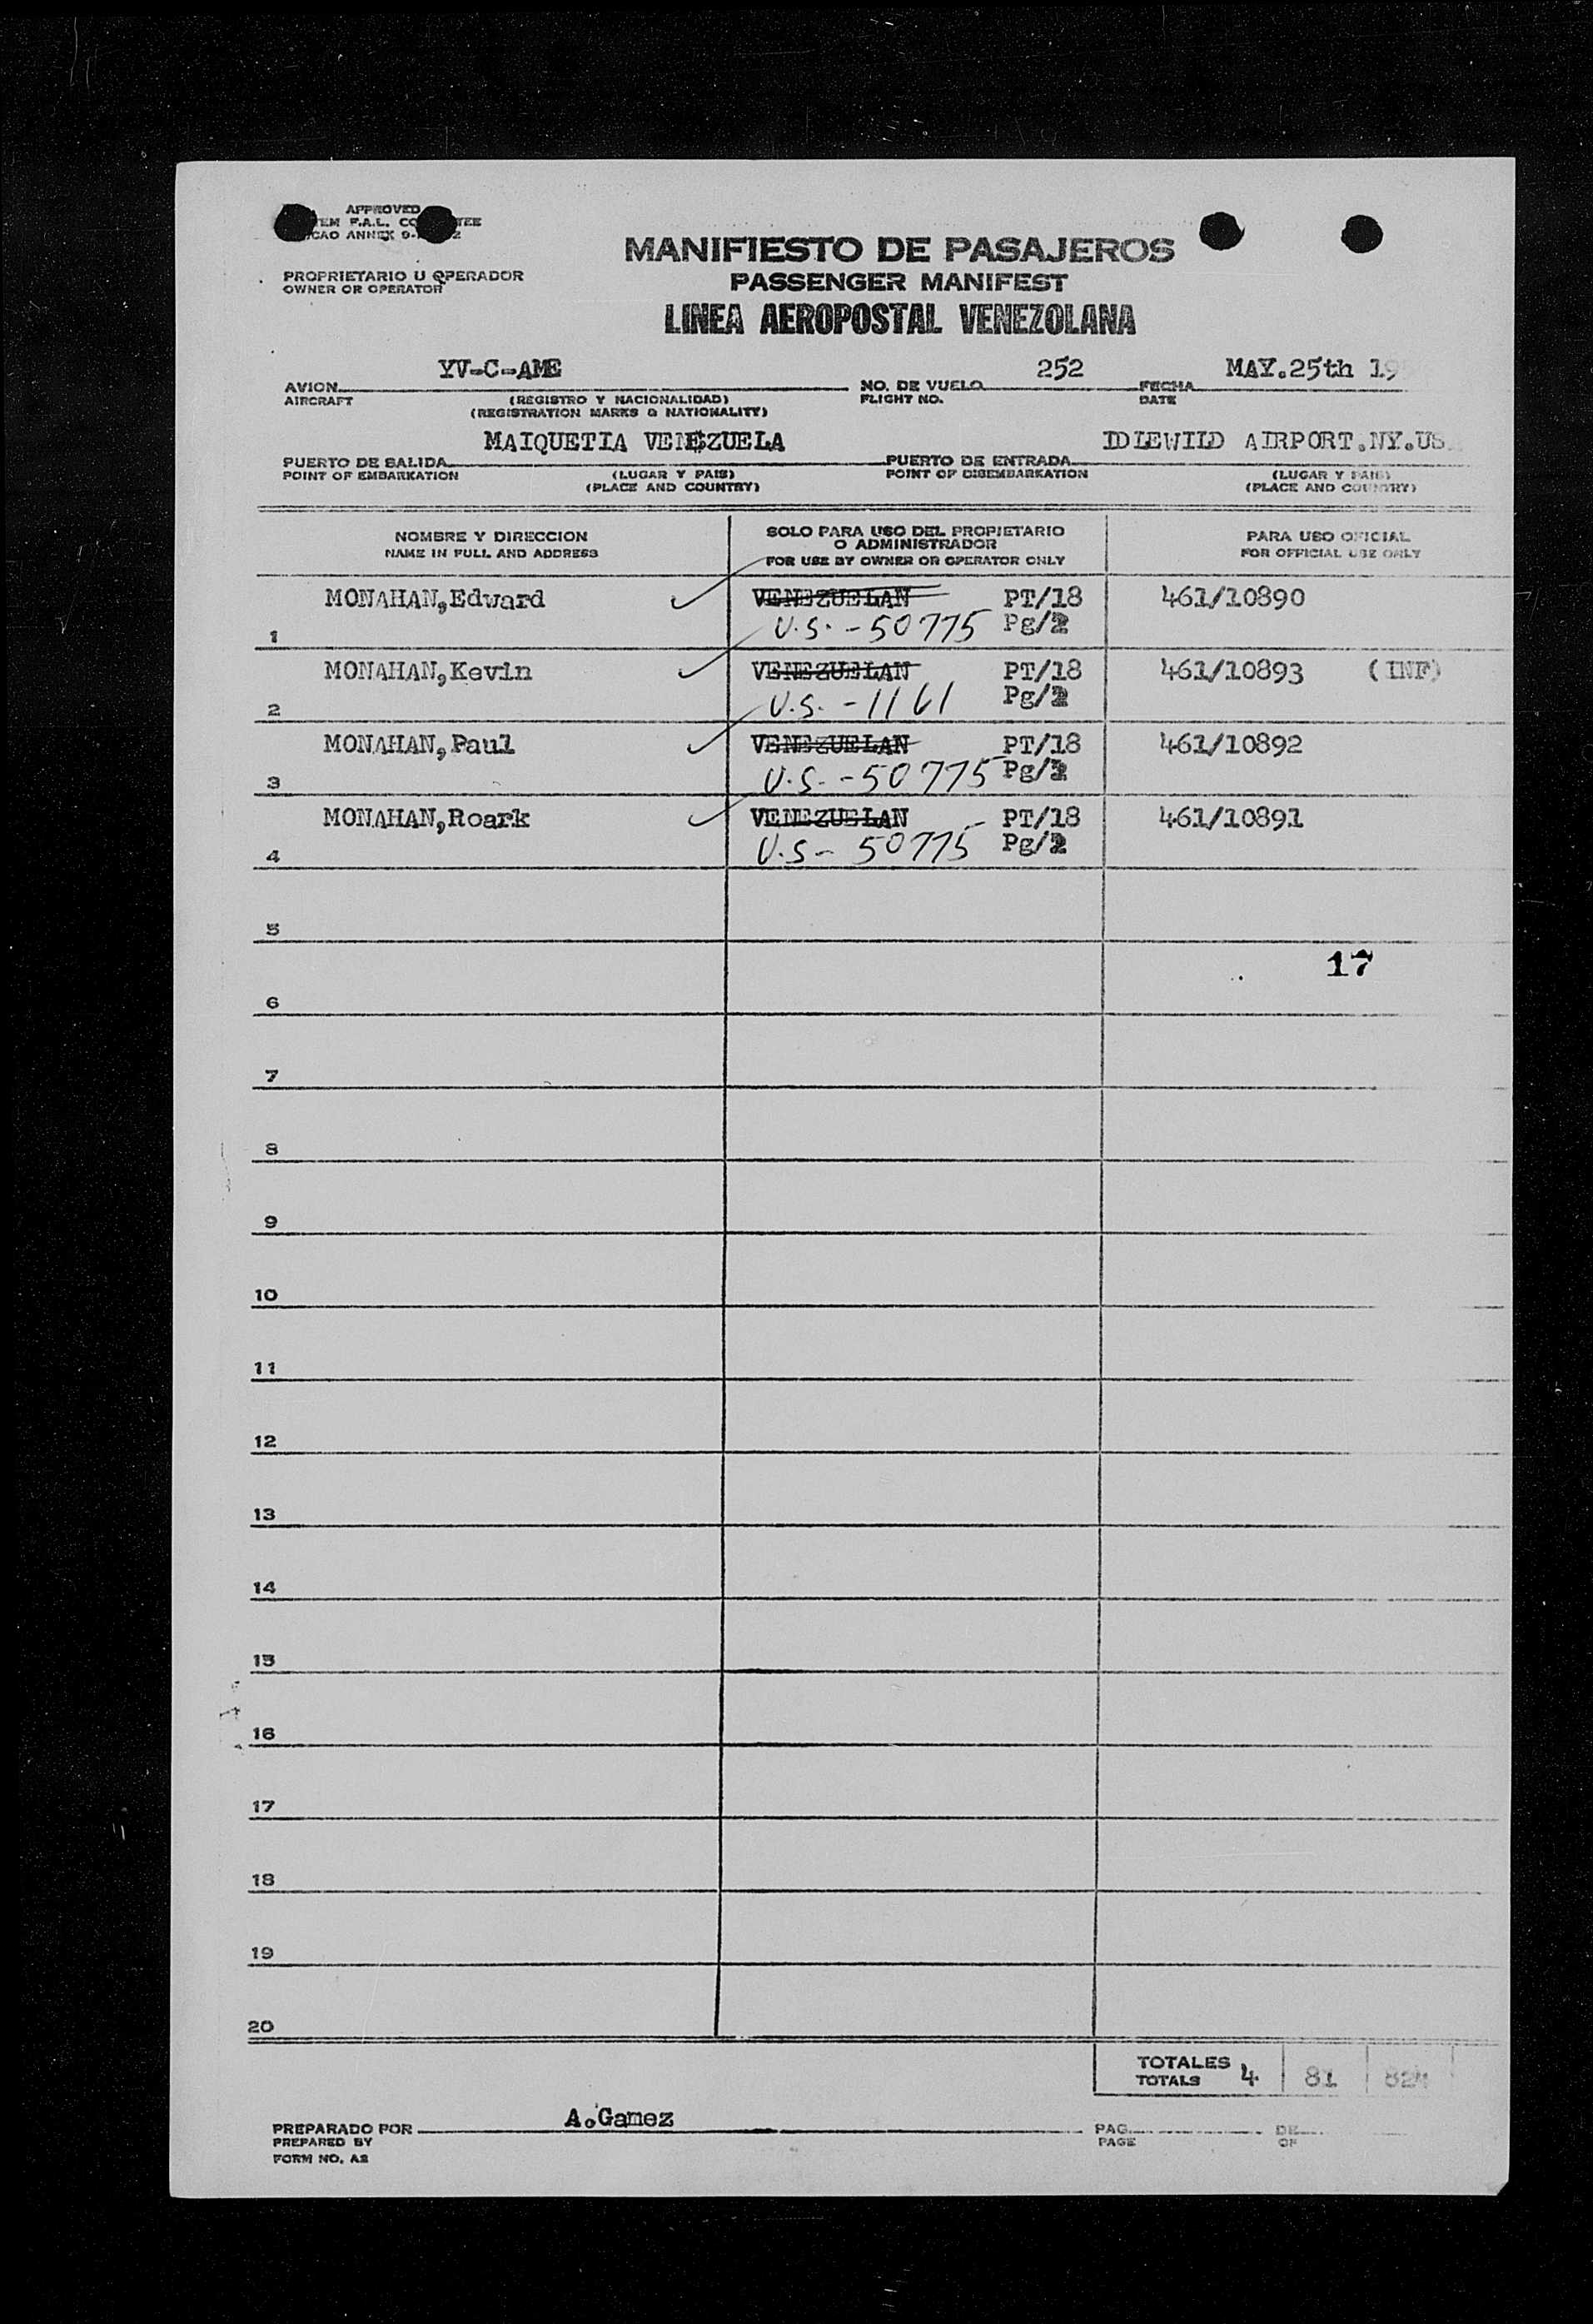 APPROVED
F.A.L.
ANNEX 9-
MANIFIESTO DE PASAJEROS
PROPRIETARIO U OPERADOR
OWNER OR OPERATOR
PASSENGER MANIFEST
LINEA AEROPOSTAL VENEZOLANA
YV-C-AME 252 MAY.25th 19
AVION NO. DE VUELO FECHA
AIRCRAFT (REGISTRO Y NACIONALIDAD) FLIGHT NO. DATE
(REGISTRATION MARKS & NATIONALITY)
MAIQUETIA VENEZUELA IDLEWILD AIRPORT.NY.US
PUERTO DE SALIDA PUERTO DE ENTRADA
POINT OF EMBARKATION (LUGAR Y PAIS) POINT OF DISEMBARKATION (LUGAR Y PAIS)
(PLACE AND COUNTRY) (PLACE AND COUNTRY)
NOMBRE Y DIRECCION SOLO PARA USO DEL PROPIETARIO PARA USO OFICIAL
O ADMINISTRADOR
NAME IN FULL AND ADDRESS FOR USE BY OWNER OR OPERATOR ONLY FOR OFFICIAL USE ONLY
MONAHAN,Edward VENEZUELAN PT/18 461/10890
1 U.S. - 50775 Pg/2
MONAHAN,Kevin VENEZUELAN PT/18 461/10893 (INF)
2 U.S. - 1161 Pg/2
MONAHAN,Paul VENEZUELAN PT/18 461/10892
3 U.S. - 50775 Pg/2
MONAHAN,Roark VENEZUELAN PT/18 461/10891
4 U.S - 50775 Pg/2
5
17
6
7
8
9
10
11
12
13
14
15
16
17
18
19
20
TOTALES
TOTALS 4 81 824
A.Gamez
PREPARADO POR PAG. DE
PREPARED BY PAGE OF
FORM NO. A2